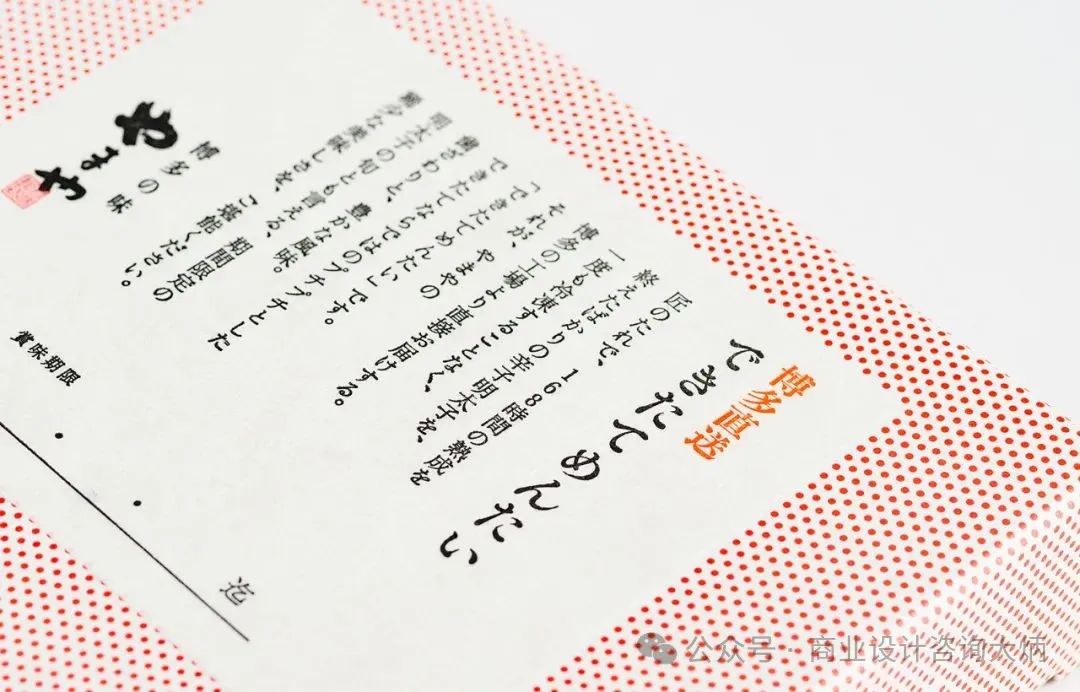 博多直送
できたてめんたい
匠のたれで、168時間の熟成を
終えたばかりの辛子明太子を、
一度も冷凍することなく、
博多の工場より直接お届けする。
それが、やまやの
「できたてめんたい」です。
できたてならではのプチプチとした
歯ざわりと、豊かな風味。
明太子の旬とも言える、期間限定の
希少な美味しさを、ご堪能ください。
博多の味
やまや
賞味期限
・
・
迄
公众号·商业设计咨询大炳